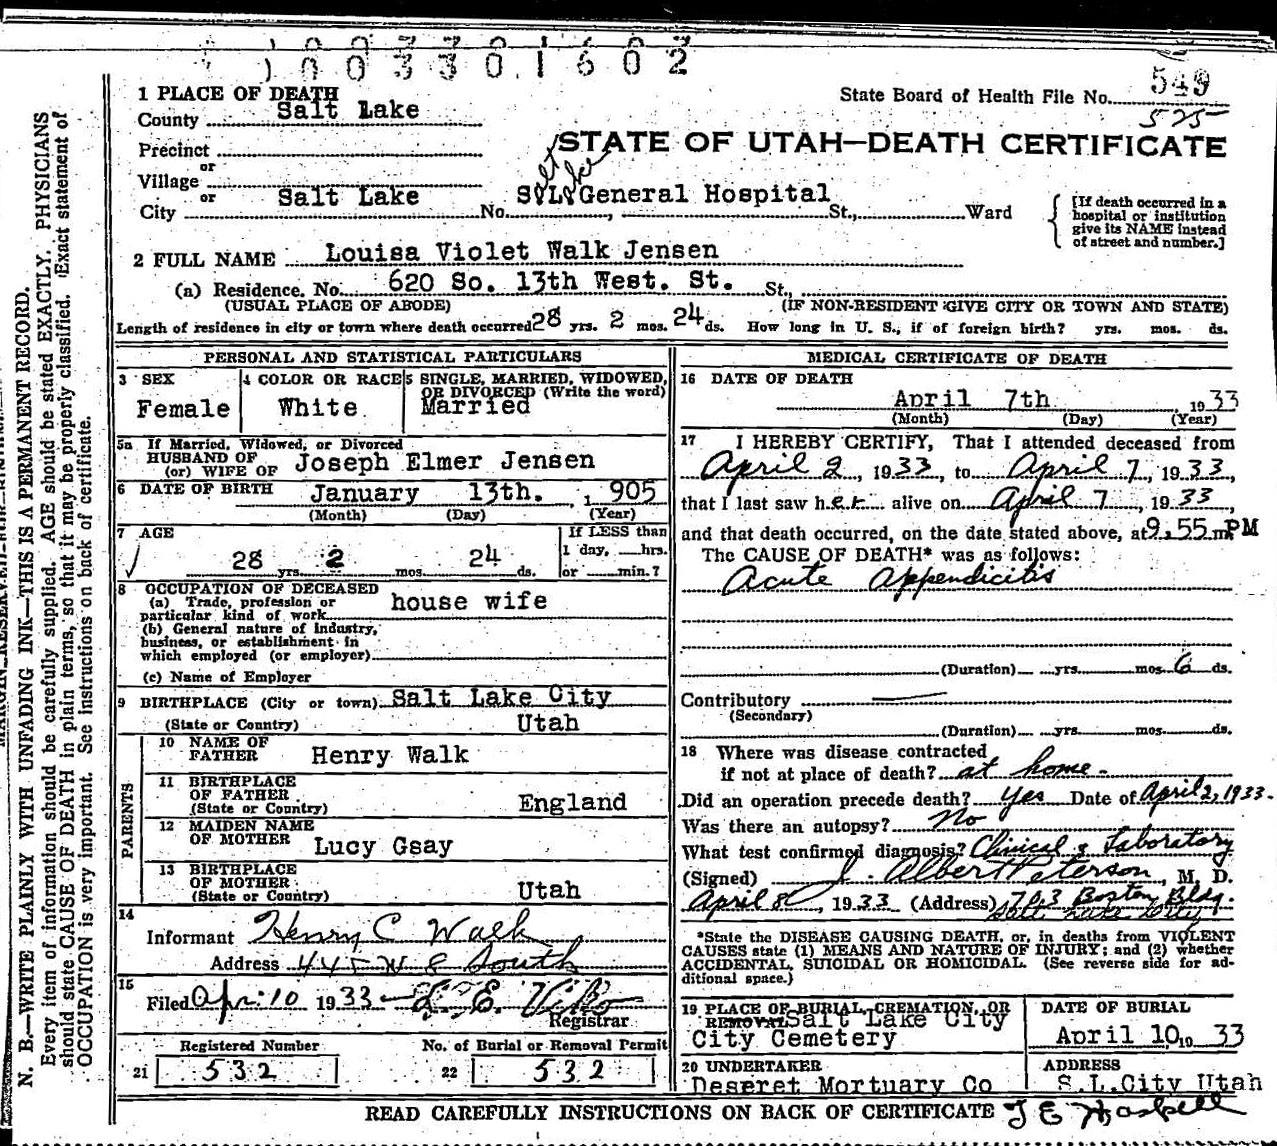 1003301602
549
State Board of Health File No.
525
1 PLACE OF DEATH
County Salt Lake
STATE OF UTAH—DEATH CERTIFICATE
Precinct
or
Village
or
City Salt Lake No. S. L. General Hospital St., Ward
alt ake
[If death occurred in a hospital or institution give its NAME instead of street and number.]
2 FULL NAME Louisa Violet Walk Jensen
(a) Residence, No. 620 So. 13th West. St. St.,
(USUAL PLACE OF ABODE) (IF NON-RESIDENT GIVE CITY OR TOWN AND STATE)
Length of residence in city or town where death occurred 28 yrs. 2 mos. 24 ds. How long in U. S., if of foreign birth? yrs. mos. ds.
PERSONAL AND STATISTICAL PARTICULARS
3 SEX
Female
4 COLOR OR RACE
White
5 SINGLE, MARRIED, WIDOWED, OR DIVORCED (Write the word)
Married
5a If Married, Widowed, or Divorced
HUSBAND OF
(or) WIFE OF Joseph Elmer Jensen
6 DATE OF BIRTH January 13th. , 1905
(Month) (Day) (Year)
7 AGE
28 yrs. 2 mos. 24 ds.
If LESS than
1 day, hrs.
or min.?
8 OCCUPATION OF DECEASED
(a) Trade, profession or
particular kind of work house wife
(b) General nature of industry,
business, or establishment in
which employed (or employer)
(c) Name of Employer
9 BIRTHPLACE (City or town) Salt Lake City
(State or Country) Utah
PARENTS
10 NAME OF
FATHER Henry Walk
11 BIRTHPLACE
OF FATHER
(State or Country) England
12 MAIDEN NAME
OF MOTHER Lucy Gsay
13 BIRTHPLACE
OF MOTHER
(State or Country) Utah
14
Informant Henry C Walk
Address 445 W 8 South
15
Filed Apr. 10 1933
Registrar
Registered Number No. of Burial or Removal Permit
21 532 22 532
MEDICAL CERTIFICATE OF DEATH
16 DATE OF DEATH
April 7th 1933
(Month) (Day) (Year)
17 I HEREBY CERTIFY, That I attended deceased from
April 2, 1933, to April 7, 1933,
that I last saw her alive on April 7, 1933,
and that death occurred, on the date stated above, at 9.55 m. PM
The CAUSE OF DEATH* was as follows:
Acute Appendicitis
(Duration) yrs. mos. 6 ds.
Contributory
(Secondary)
(Duration) yrs. mos. ds.
18 Where was disease contracted
if not at place of death? at home-
Did an operation precede death? yes Date of April 2, 1933.
Was there an autopsy? No
What test confirmed diagnosis? Clinical & Laboratory
(Signed) J. Albert Peterson, M. D.
April 8, 1933 (Address) 703 Boston Bldg.
Salt Lake City
*State the DISEASE CAUSING DEATH, or, in deaths from VIOLENT
CAUSES state (1) MEANS AND NATURE OF INJURY; and (2) whether
ACCIDENTAL, SUICIDAL OR HOMICIDAL. (See reverse side for ad-
ditional space.)
19 PLACE OF BURIAL, CREMATION, OR
REMOVAL Salt Lake City
City Cemetery
DATE OF BURIAL
April 10, 19 33
20 UNDERTAKER
Deseret Mortuary Co
ADDRESS
S.L.City Utah
READ CAREFULLY INSTRUCTIONS ON BACK OF CERTIFICATE T E Haskell
N. B.—WRITE PLAINLY WITH UNFADING INK—THIS IS A PERMANENT RECORD.
Every item of information should be carefully supplied. AGE should be stated EXACTLY. PHYSICIANS
should state CAUSE OF DEATH in plain terms, so that it may be properly classified. Exact statement of
OCCUPATION is very important. See instructions on back of certificate.